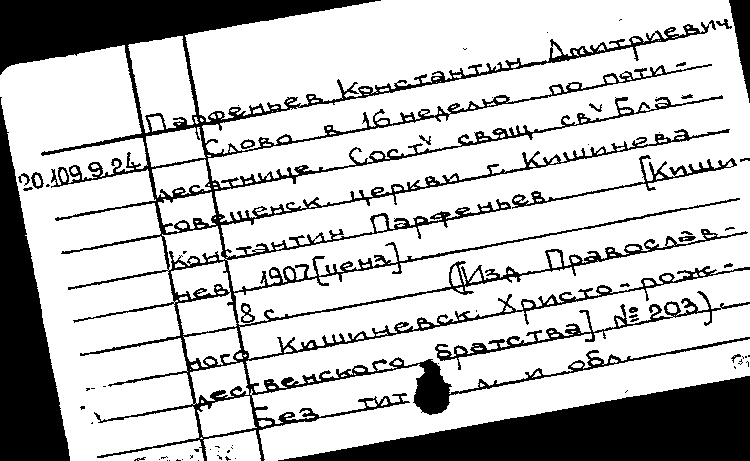 Парфеньев, Константин Дмитриевич
Слово в 16 неделю по пяти-
20.109.9.24.
десятнице. Сост. свящ. св. Бла-
говещенск. церкви г. Кишинева
Константин Парфеньев. [Киши-
нев], 1907 [цена].
8 с. ([Изд. Православ-
ного Кишиневск. Христо-рож-
дественского братства], № 203).
Без тит. л. и обл.